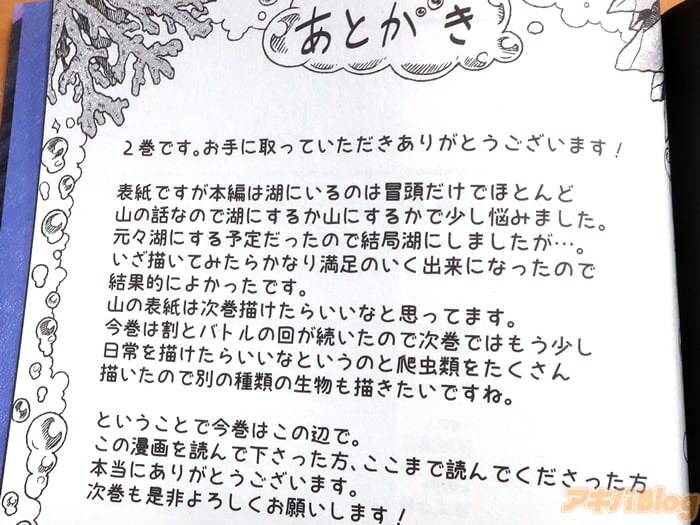 あとがき
2巻です。お手に取っていただきありがとうございます!
表紙ですが本編は湖にいるのは冒頭だけでほとんど
山の話なので湖にするか山にするかで少し悩みました。
元々湖にする予定だったので結局湖にしましたが…。
いざ描いてみたらかなり満足のいく出来になったので
結果的によかったです。
山の表紙は次巻描けたらいいなと思ってます。
今巻は割とバトルの回が続いたので次巻ではもう少し
日常を描けたらいいなというのと爬虫類をたくさん
描いたので別の種類の生物も描きたいですね。
ということで今巻はこの辺で。
この漫画を読んで下さった方、ここまで読んでくださった方
本当にありがとうございます。
次巻も是非よろしくお願いします!
アキバBlog